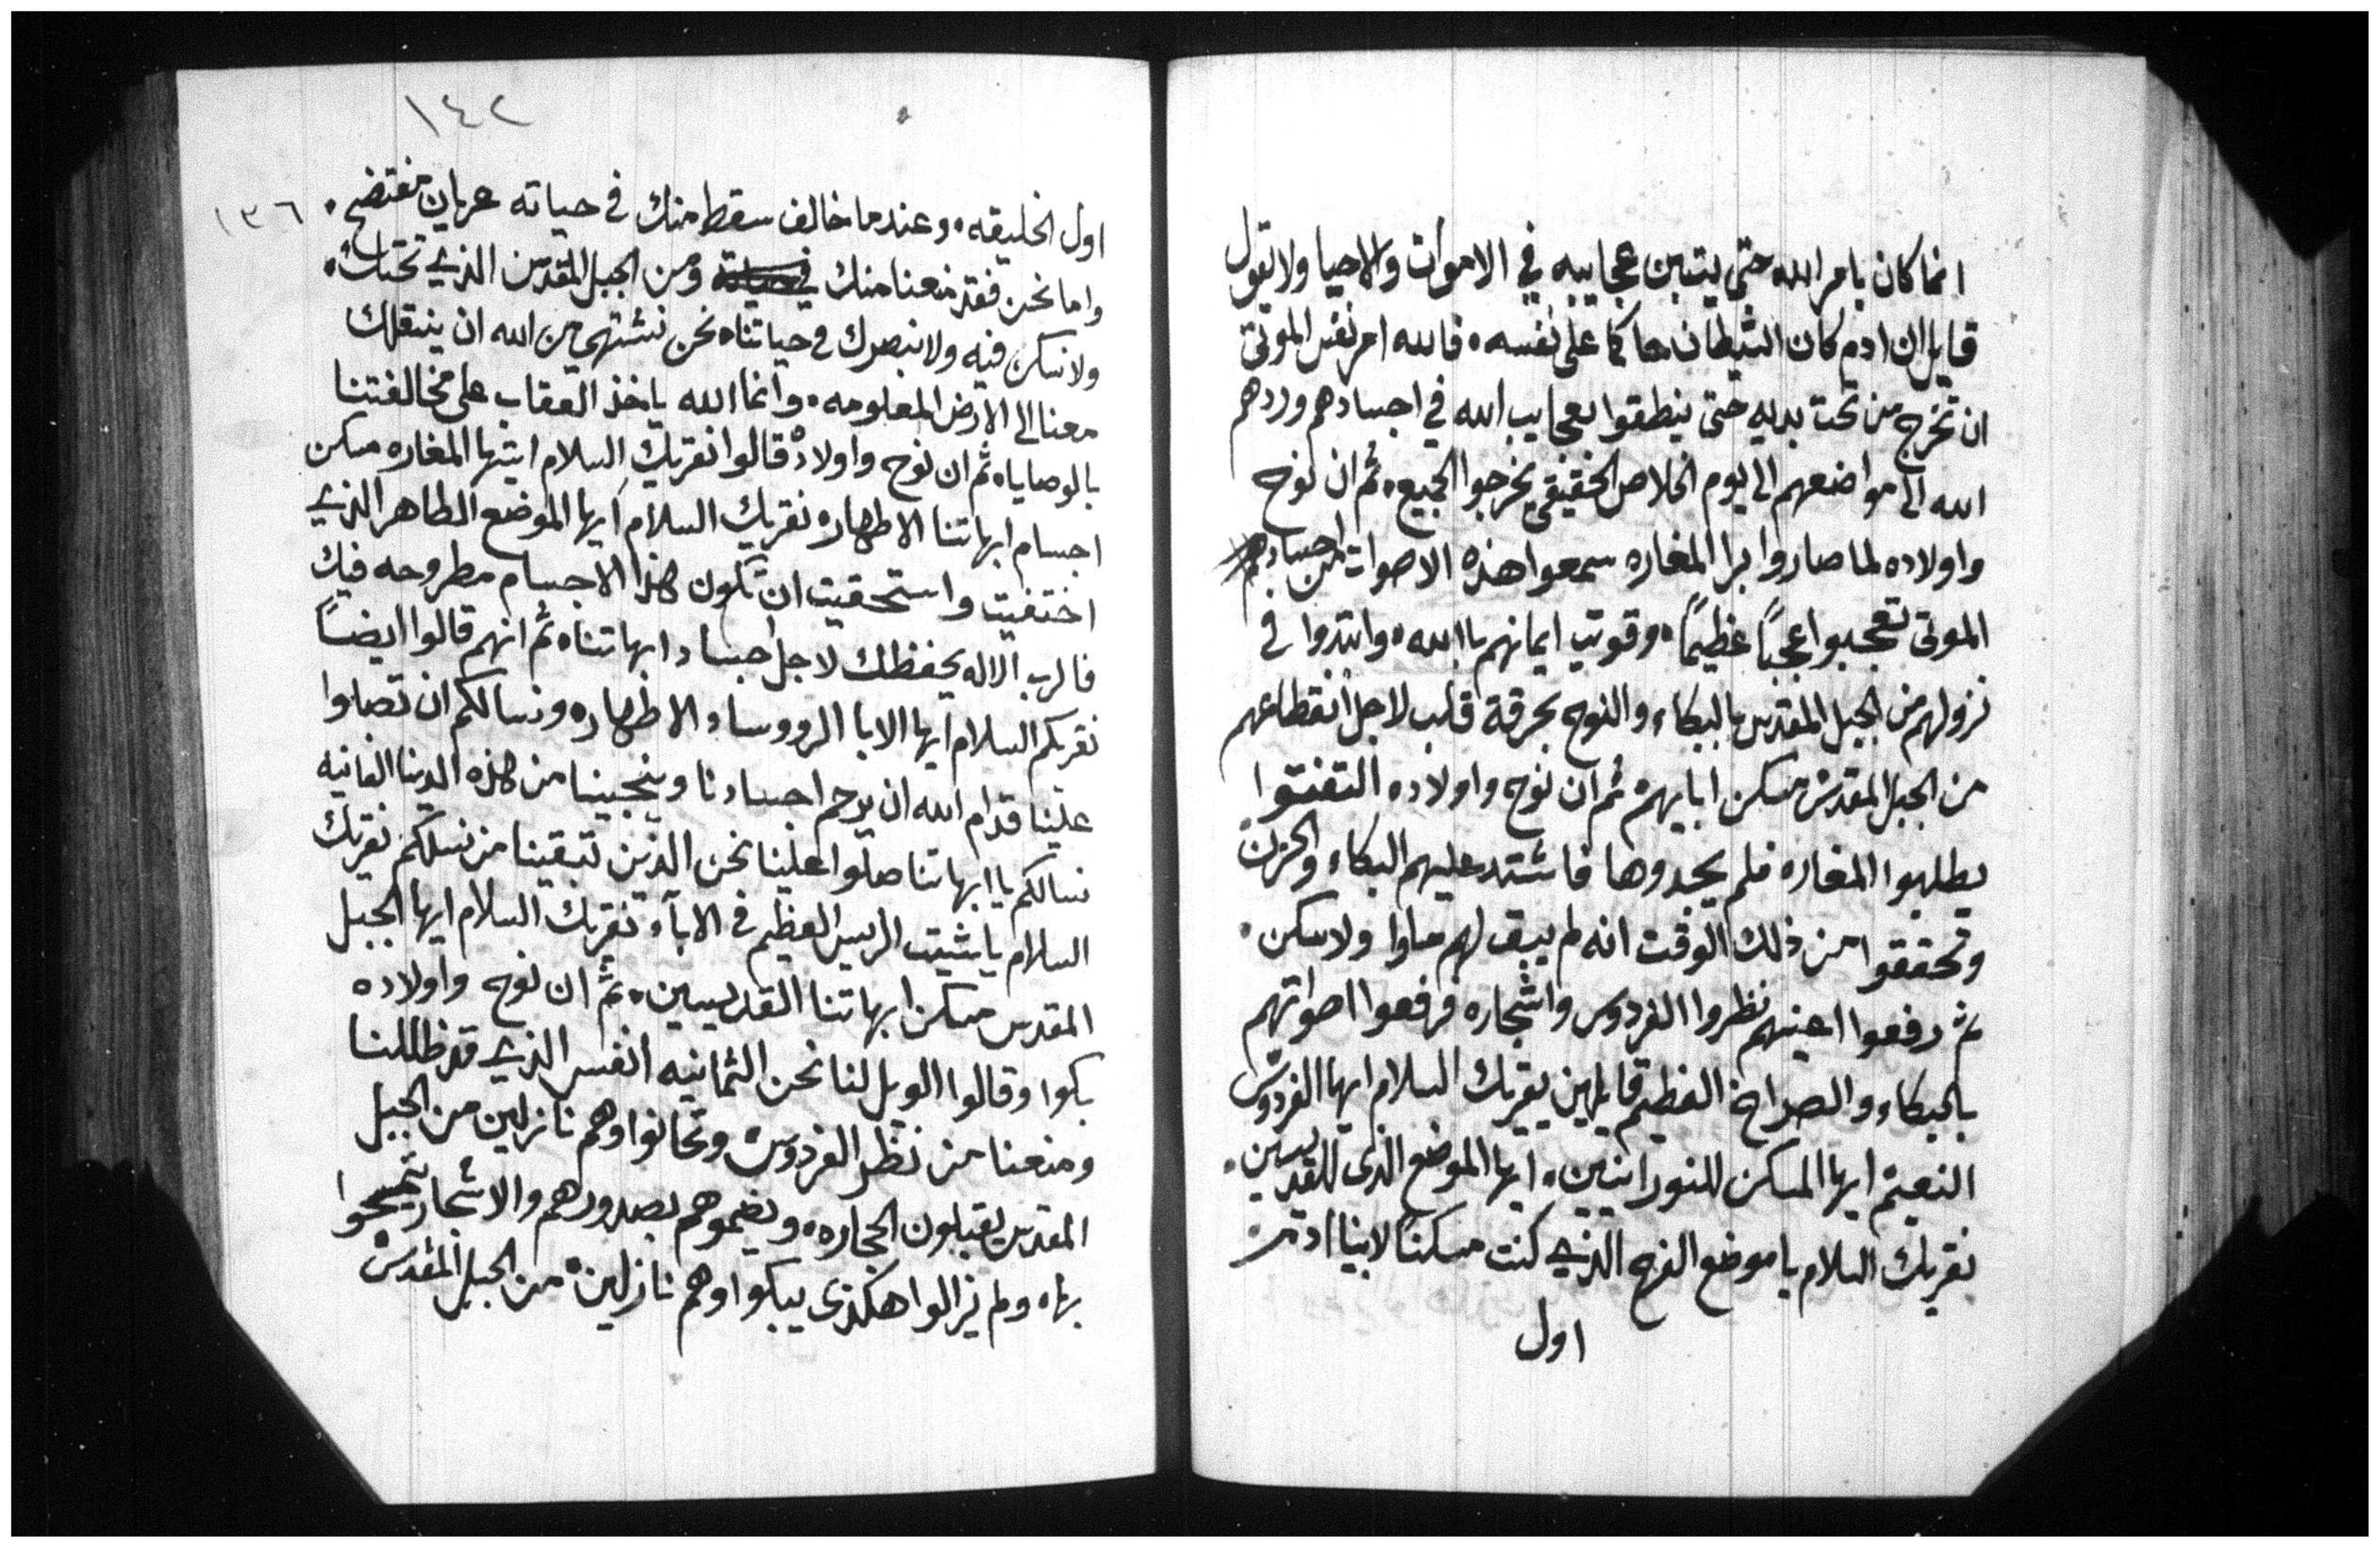 انما كان بامر الله حتى يتبين عجايبه في الاموات والاحيا ولا تقول
قايل ان ادم كان الشيطان حاكما على نفسه • فالله امر نفس الموتى
ان تخرج من تحت يديه حتى ينطقوا بعجايب الله في اجسادهم وردهم
الله الى مواضعهم الى يوم الخلاص الحقيقي يخرجوا الجميع • ثم ان نوح
واولاده لما صاروا برا المغاره سمعوا هذه الاصوات من اجسادهم
الموتى تعجبوا عجباً عظيماً • وقويت ايمانهم باالله • وابتدوا في
نزولهم من الجبل المقدس بالبكاء والنوح بحرقة قلب لاجل انقطاعهم
من الجبل المقدس مسكن ابايهم ثم ان نوح واولاده التفتوا
يطلبوا المغاره فلم يجدوها فاشتد عليهم البكاء والحزن
وتحققوا من ذلك الوقت انه لم يبق لهم ماوا ولا سكن •
ثم رفعوا اعينهم نظروا الفردوس واشجاره فرفعوا اصواتهم
بالبكاء والصراخ العظيم قايلين يقريك السلام ايها الفردوس
النعيم ايها المسكن للنورانيين • ايها الموضع الذى للقديسين •
نقريك السلام يا موضع الفرح الذي كنت مسكناً لابينا ادم
اول
١٤٢
١٣٦
اول الخليقه • وعندما خالف سقط منك في حياته عريان مفتضح •
واما نحن فقد منعنا منك ومن الجبل المقدس الذي تحتك •
ولا نسكن فيه ولا نبصرك في حياتنا • نحن نشتهي من الله ان ينقلك
معنا الى الارض المعلومه • وانما الله ياخذ العقاب على مخالفتنا
بالوصايا • ثم ان نوح واولاده قالوا نقريك السلام ايتها المغاره مسكن
اجسام ابهاتنا الاطهار • نقريك السلام ايها الموضع الطاهر الذي
اختفيت واستحقيت ان تكون هذا الاجسام مطروحه فيك
فالرب الاله يحفظك لاجل اجساد ابهاتنا • ثم انهم قالوا ايضاً
نقريكم السلام ايها الابا الرووساء الاطهار • ونسالكم ان تصلوا
علينا قدام الله ان يرحم اجسادنا وينجينا من هذه الدينا الفانيه
نسالكم يا ابهاتنا صلوا علينا نحن الذين تبقينا من نسلكم نقريك
السلام يا شيت الريس العظيم في الاباء نقريك السلام ايها الجبل
المقدس مسكن ابهاتنا القديسين • ثم ان نوح واولاده
بكوا وقالوا الويل لنا نحن الثمانيه انفس الذي قد ظللنا
ومنعنا من نظر الفردوس وتحانوا وهم نازلين من الجبل
المقدس يقبلون الحجاره • ويضموهم بصدورهم والاشجار يتمسحوا
بها • ولم يزالوا هكذى يبكوا وهم نازلين • من الجبل المقدس